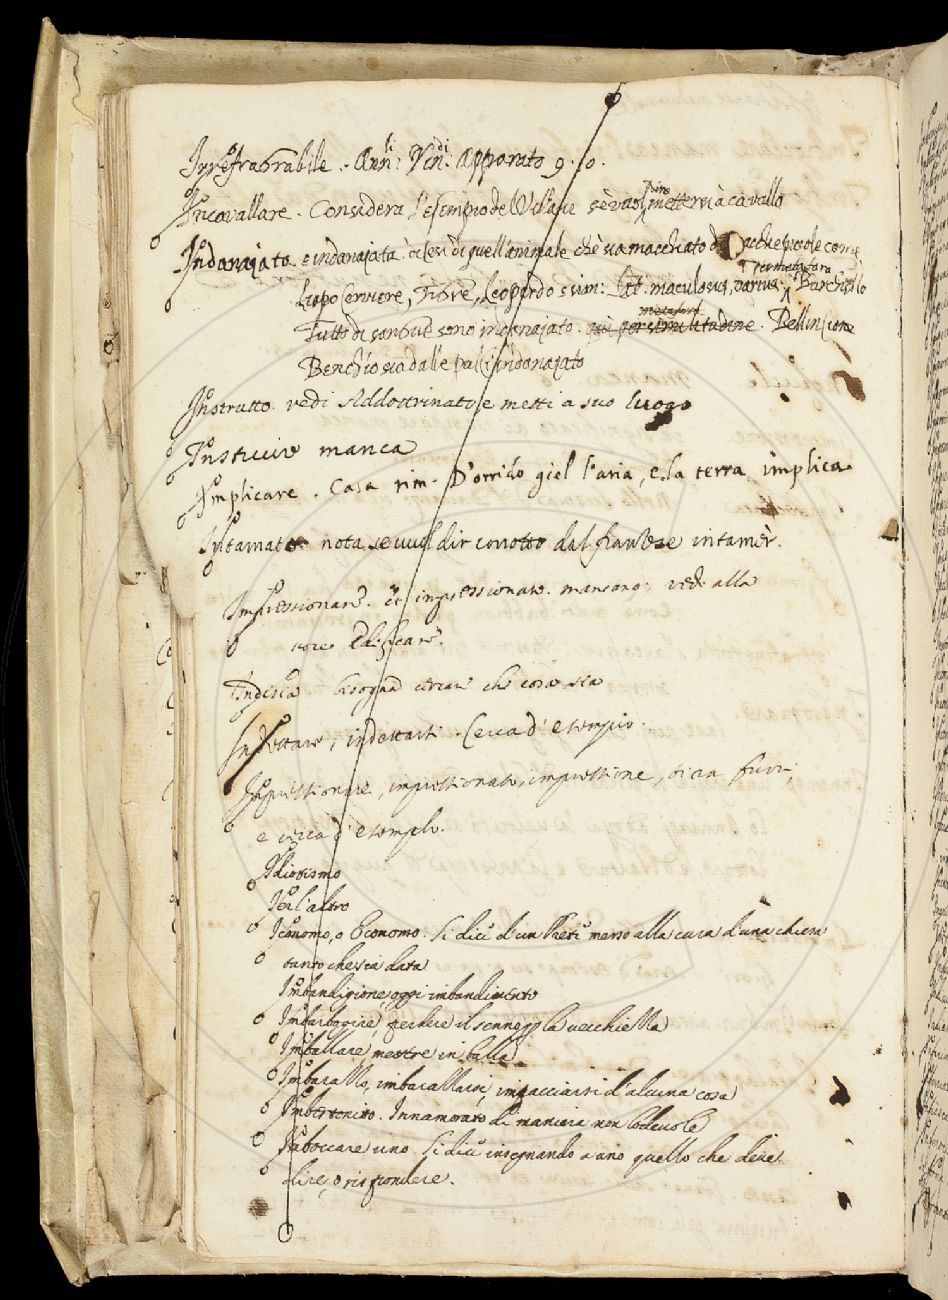 Irrefragabile. Ann: Vin: apparato 9. 10.
Incavallare. Considera l'esempio del Villani se vuol dire mettersi à cavallo
Indanajato e indanajata dicesi di quell'animale chè sia macchiato di ... come
Lupo Cerviere, Tibre, Leopardo e sim: Lat: maculosus, varius per metafora Burchiello
Tutto di sangue sono indanajato. per similitudine metafora. Bellincione
Benchè sia dalle indanajato
Instrutto. vedi Addottrinato e metti a suo luogo
Instruire manca
Implicare. Casa rim. D'orrido giel l'aria, e la terra implica
Intamato nota se vuol dir condotto dal franzese intamèr.
Impressionare. et impressionato. mancano. vedi alla
voce Edificare.
Indisca bisogna cercar che cosa sia
Indettare, indettarsi. Cerca d'esempio.
Impressionare, impressionato, impressione, si cava fuori,
e cerca d'esemplo.
Idiotismo
Ierl'altro
Iconomo, o Economo. Si dice d'un Prete messo alla cura d'una chiesa
tanto che sia data
Imbandigione, oggi imbandimento
Imbarbogire, perdere il senno per la vecchiezza
Imballare, mettere in balla
Imbarazzo, imbarazzare, impacciarsi d'alcuna cosa
Imbertonito. Innamorato di maniera non lodevole
Imboccare uno. Si dice insegnando a uno quello che deve
dire, o rispondere.